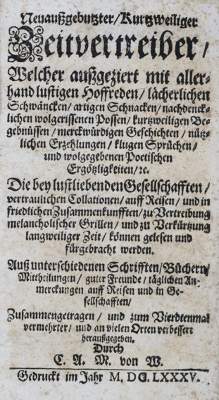 Neuaußgebutzter/Kurtzweiliger
Zeitvertreiber/
Welcher außgeziert mit aller-
hand lustigen Hoffreden/ lächerlichen
Schwäncken/ artigen Schnacken/ nachdenck-
lichen wolgerissenen Possen/ kurtzweiligen Be-
gebnüssen/ merckwürdigen Geschichten/ nütz-
lichen Erzehlungen/ klugen Sprüchen/
und wolgegebenen Poetischen
Ergötzligkeiten/ꝛc.
Die bey lustliebenden Gesellschafften/
vertraulichen Collationen/ auff Reisen/ und in
friedlichen Zusammenkunfften/ zu Vertreibung
melancholischer Grillen/ und zu Verkürtzung
langweiliger Zeit/ können gelesen und
fürgebracht werden.
Auß unterschiedenen Schrifften/ Büchern/
Mittheilungen/ guter Freunde/ täglichen An-
merckungen auff Reisen und in Ge-
sellschafften/
Zusammengetragen/ und zum Vierdtenmal
vermehrter/ und an vielen Orten verbessert
herausgegeben.
Durch
C. A. M. von W.
Gedruckt im Jahr M, DC. LXXXV.